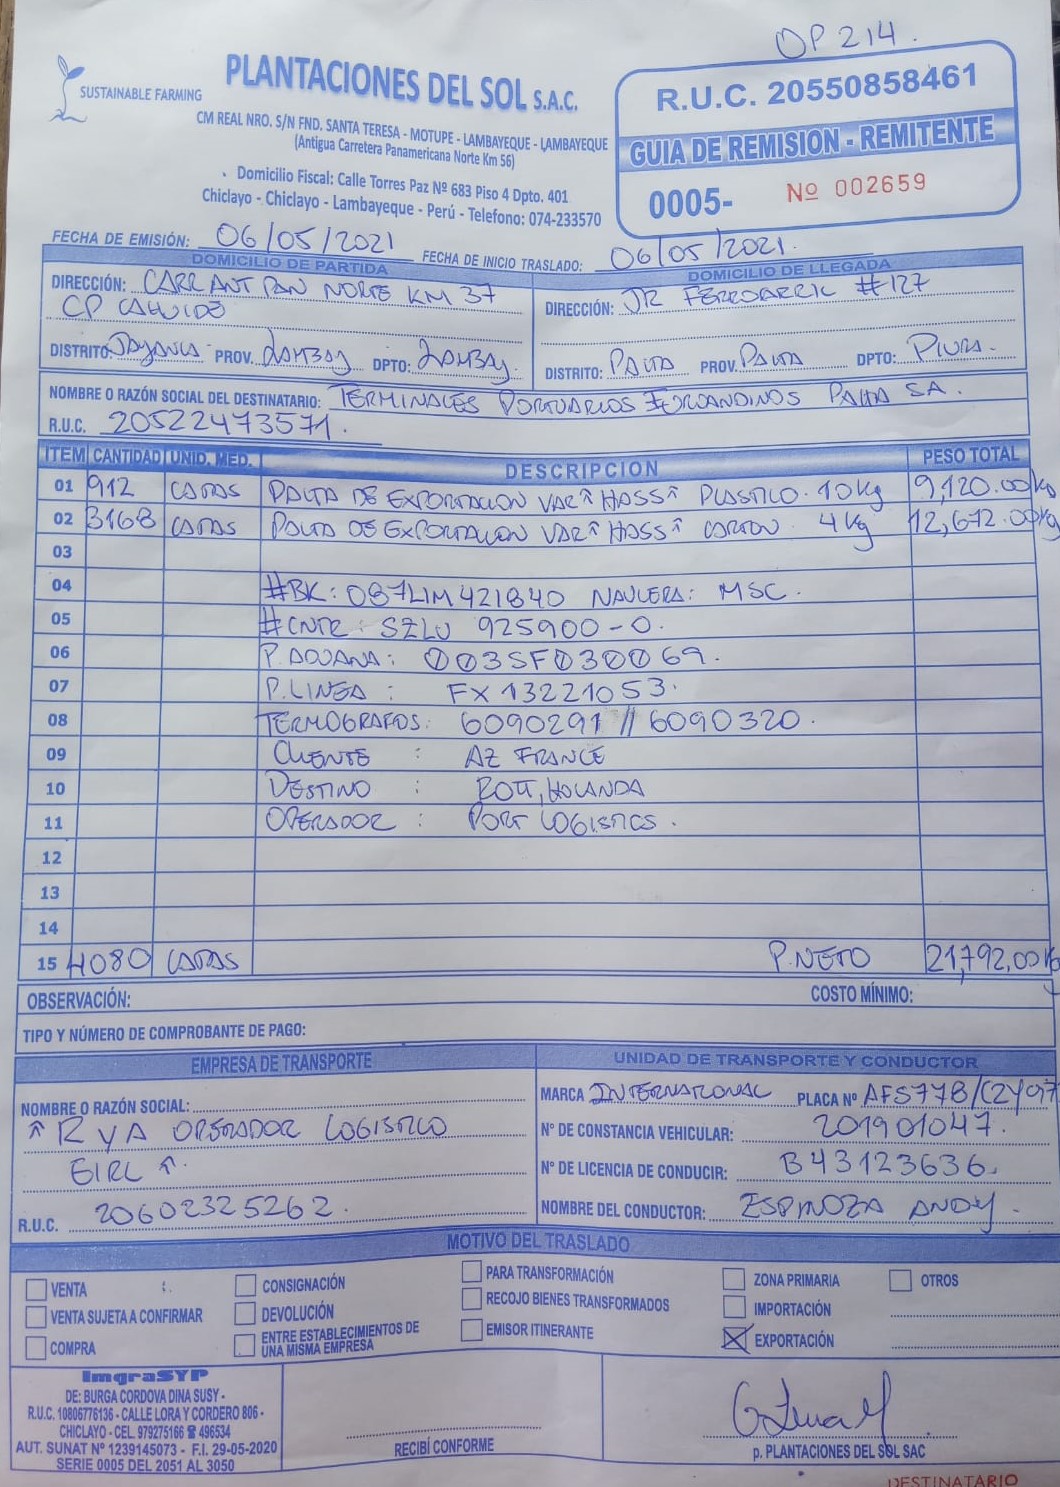 OP 214.
SUSTAINABLE FARMING
PLANTACIONES DEL SOL S.A.C.
CM REAL NRO. S/N FND. SANTA TERESA - MOTUPE - LAMBAYEQUE - LAMBAYEQUE
(Antigua Carretera Panamericana Norte Km 56)
Domicilio Fiscal: Calle Torres Paz Nº 683 Piso 4 Dpto. 401
Chiclayo - Chiclayo - Lambayeque - Perú - Telefono: 074-233570
R.U.C. 20550858461
GUIA DE REMISION - REMITENTE
0005- Nº 002659
FECHA DE EMISIÓN: 06/05/2021 FECHA DE INICIO TRASLADO: 06/05/2021.
DOMICILIO DE PARTIDA
DIRECCIÓN: CARR ANT PAN NORTE KM 37
CP CAHUIDE
DISTRITO: Jayanca PROV. LAMBAY DPTO: LAMBAY.
DOMICILIO DE LLEGADA
DIRECCIÓN: JR FERROCARRIL #127
DISTRITO: PAITA PROV. PAITA DPTO: PIURA.
NOMBRE O RAZÓN SOCIAL DEL DESTINATARIO: TERMINALES PORTUARIOS EUROANDINOS PAITA SA.
R.U.C. 20522473571.
ITEM CANTIDAD UNID. MED. DESCRIPCION PESO TOTAL
01 912 CAJAS PALTA DE EXPORTACION VAR "HASS" PLASTICO. 10Kg 9,120.00Kg
02 3168 CAJAS PALTA DE EXPORTACION VAR "HASS" CARTON 4Kg 12,672.00Kg
03
04 #BK: 087LIM421840 NAVIERA: MSC.
05 #CNTR: SZLU 925900-0.
06 P. ADUANA: 003SF030069.
07 P. LINEA: FX13221053.
08 TERMOGRAFOS: 6090291 // 6090320.
09 CLIENTE : AZ FRANCE
10 DESTINO : ROTT, HOLANDA
11 OPERADOR : PORT LOGISTICS.
12
13
14
15 4080 CAJAS P. NETO 21,792,00Kg
OBSERVACIÓN: COSTO MÍNIMO:
TIPO Y NÚMERO DE COMPROBANTE DE PAGO:
EMPRESA DE TRANSPORTE
NOMBRE O RAZÓN SOCIAL:
"R Y A OPERADOR LOGISTICO
EIRL".
R.U.C. 20602325262.
UNIDAD DE TRANSPORTE Y CONDUCTOR
MARCA INTERNATIONAL PLACA Nº AFS778/C2Y97
Nº DE CONSTANCIA VEHICULAR: 201901047.
Nº DE LICENCIA DE CONDUCIR: B43123636.
NOMBRE DEL CONDUCTOR: ESPINOZA ANDY.
MOTIVO DEL TRASLADO
VENTA
VENTA SUJETA A CONFIRMAR
COMPRA
CONSIGNACIÓN
DEVOLUCIÓN
ENTRE ESTABLECIMIENTOS DE
UNA MISMA EMPRESA
PARA TRANSFORMACIÓN
RECOJO BIENES TRANSFORMADOS
EMISOR ITINERANTE
ZONA PRIMARIA
IMPORTACIÓN
EXPORTACIÓN
OTROS
ImgraSYP
DE: BURGA CORDOVA DINA SUSY -
R.U.C. 10806776136 - CALLE LORA Y CORDERO 806 -
CHICLAYO - CEL. 979275166 ☎ 496534
AUT. SUNAT Nº 1239145073 - F.I. 29-05-2020
SERIE 0005 DEL 2051 AL 3050
RECIBÍ CONFORME
p. PLANTACIONES DEL SOL SAC
DESTINATARIO